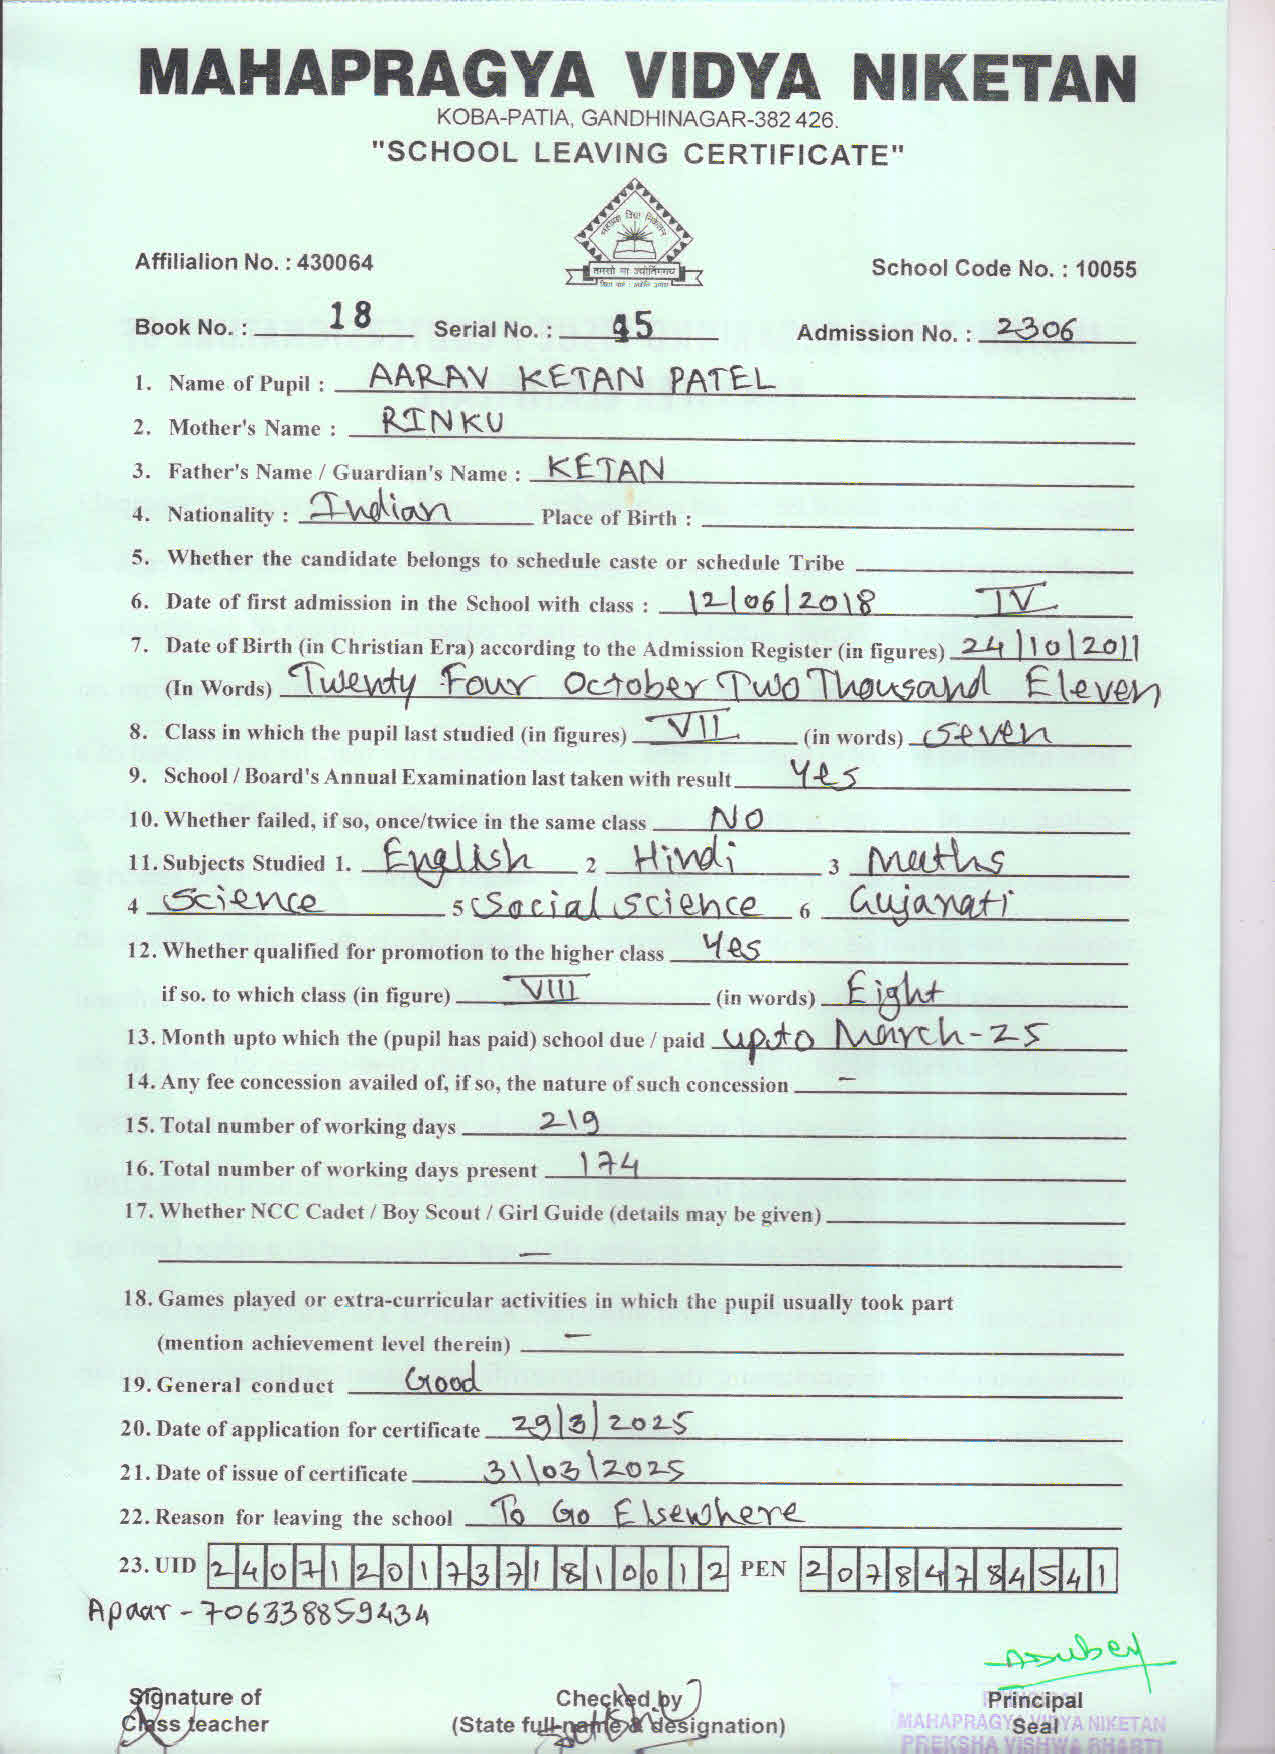 MAHAPRAGYA VIDYA NIKETAN
KOBA-PATIA, GANDHINAGAR-382 426.
"SCHOOL LEAVING CERTIFICATE"
महाप्रज्ञ विद्या निकेतन
तमसो मा ज्योतिर्गमय
Affilialion No. : 430064
School Code No. : 10055
Book No. : 18 Serial No. : 45 Admission No. : 2306
1. Name of Pupil : AARAV KETAN PATEL
2. Mother's Name : RINKU
3. Father's Name / Guardian's Name : KETAN
4. Nationality : Indian Place of Birth :
5. Whether the candidate belongs to schedule caste or schedule Tribe
6. Date of first admission in the School with class : 12/06/2018 IV
7. Date of Birth (in Christian Era) according to the Admission Register (in figures) 24/10/2011
(In Words) Twenty Four October Two Thousand Eleven
8. Class in which the pupil last studied (in figures) VII (in words) Seven
9. School / Board's Annual Examination last taken with result Yes
10. Whether failed, if so, once/twice in the same class NO
11. Subjects Studied 1. English 2 Hindi 3 Maths
4 Science 5 Social Science 6 Gujarati
12. Whether qualified for promotion to the higher class Yes
if so. to which class (in figure) VIII (in words) Eight
13. Month upto which the (pupil has paid) school due / paid upto March-25
14. Any fee concession availed of, if so, the nature of such concession -
15. Total number of working days 219
16. Total number of working days present 174
17. Whether NCC Cadet / Boy Scout / Girl Guide (details may be given)
-
18. Games played or extra-curricular activities in which the pupil usually took part
(mention achievement level therein) -
19. General conduct Good
20. Date of application for certificate 29/3/2025
21. Date of issue of certificate 31/03/2025
22. Reason for leaving the school To Go Elsewhere
23. UID 240712017371810012 PEN 20784784541
Apaar - 706338859434
ADubey
Signature of Checked by Principal
Class teacher (State full-name & designation) Seal
PRINCIPAL
MAHAPRAGYA VIDYA NIKETAN
PREKSHA VISHWA BHARTI